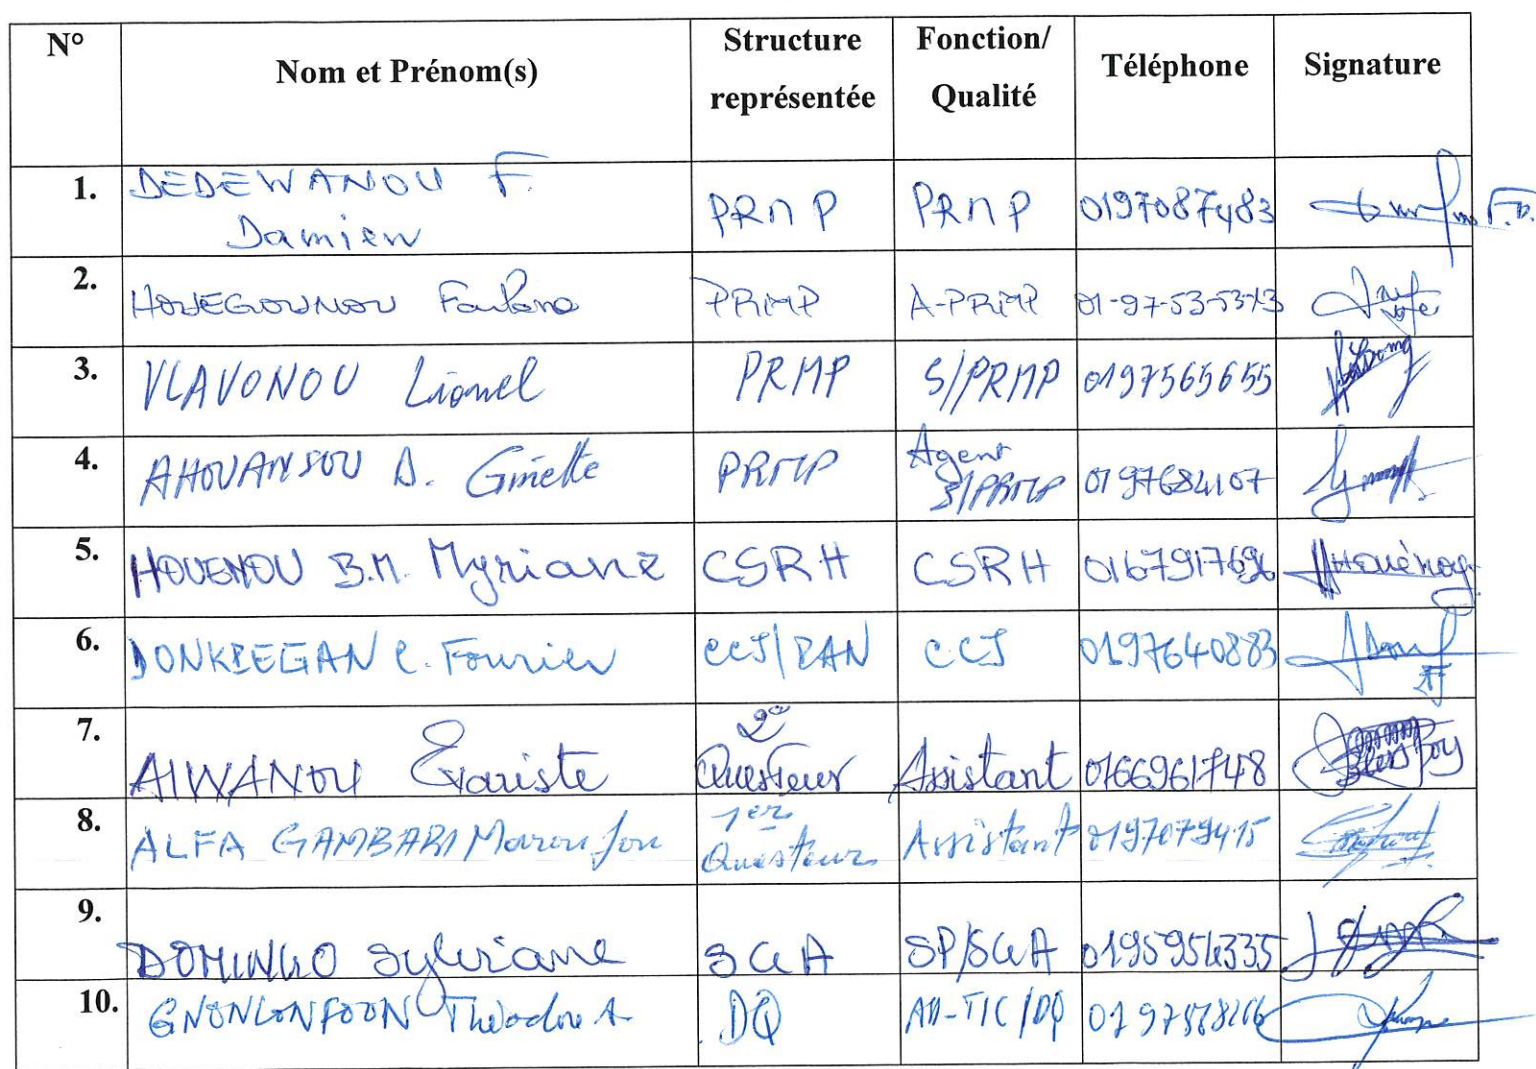 N° Nom et Prénom(s) Structure représentée Fonction/ Qualité Téléphone Signature
1. DEDEWANOU F. Damien PRMP PRMP 0197087483
2. HOUEGOUNOU PRMP A-PRMP 01-97-53-53-13
3. VLAVONOU Lionel PRMP S/PRMP 0197565655
4. AHOUANSOU D. Ginette PRMP Agent S/PRMP 0197684107
5. HOUENOU B.M. Myriane CSRH CSRH 0167917696
6. DONKBEGAN C. Fourier CCJ/ CCJ 0197640883
7. AIWANOU Evariste 2e Questeur Assistant 0166961748
8. ALFA GAMBARI Maroufou 1er Questeur Assistant 0197079415
9. DOMINGO Sylviane SGA SP/SGA 0195956335
10. GNONLONFOUN Théodore A. DQ